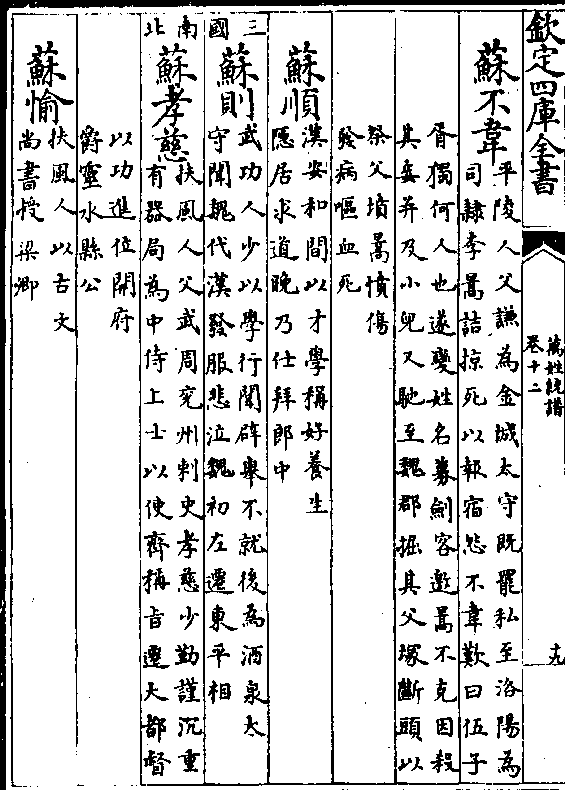 欽定四庫全書
萬姓統譜
卷十二
十九
蘇不韋
平陵人父謙為金城太守既罷私至洛陽為
司隷李暠詰掠死以報宿怨不韋歎曰伍子
胥獨何人也遂變姓名募劍客邀暠不克因殺
其妾并及小兒又馳至魏郡掘其父塚斷頭以
祭父墳暠憤傷
發病嘔血死
蘇順
漢安和間以才學稱好養生
隱居求道晚乃仕拜郎中
三國
蘇則
武功人少以學行聞辟舉不就後為酒泉太
守聞魏代漢發服悲泣魏初左遷東平相
南北
蘇孝慈
扶風人父武周兖州刺史孝慈少勤謹沉重
有器局為中侍上士以使齊稱旨遷大都督
以功進位開府
爵靈水縣公
蘇愉
扶風人以古文
尚書授梁卿